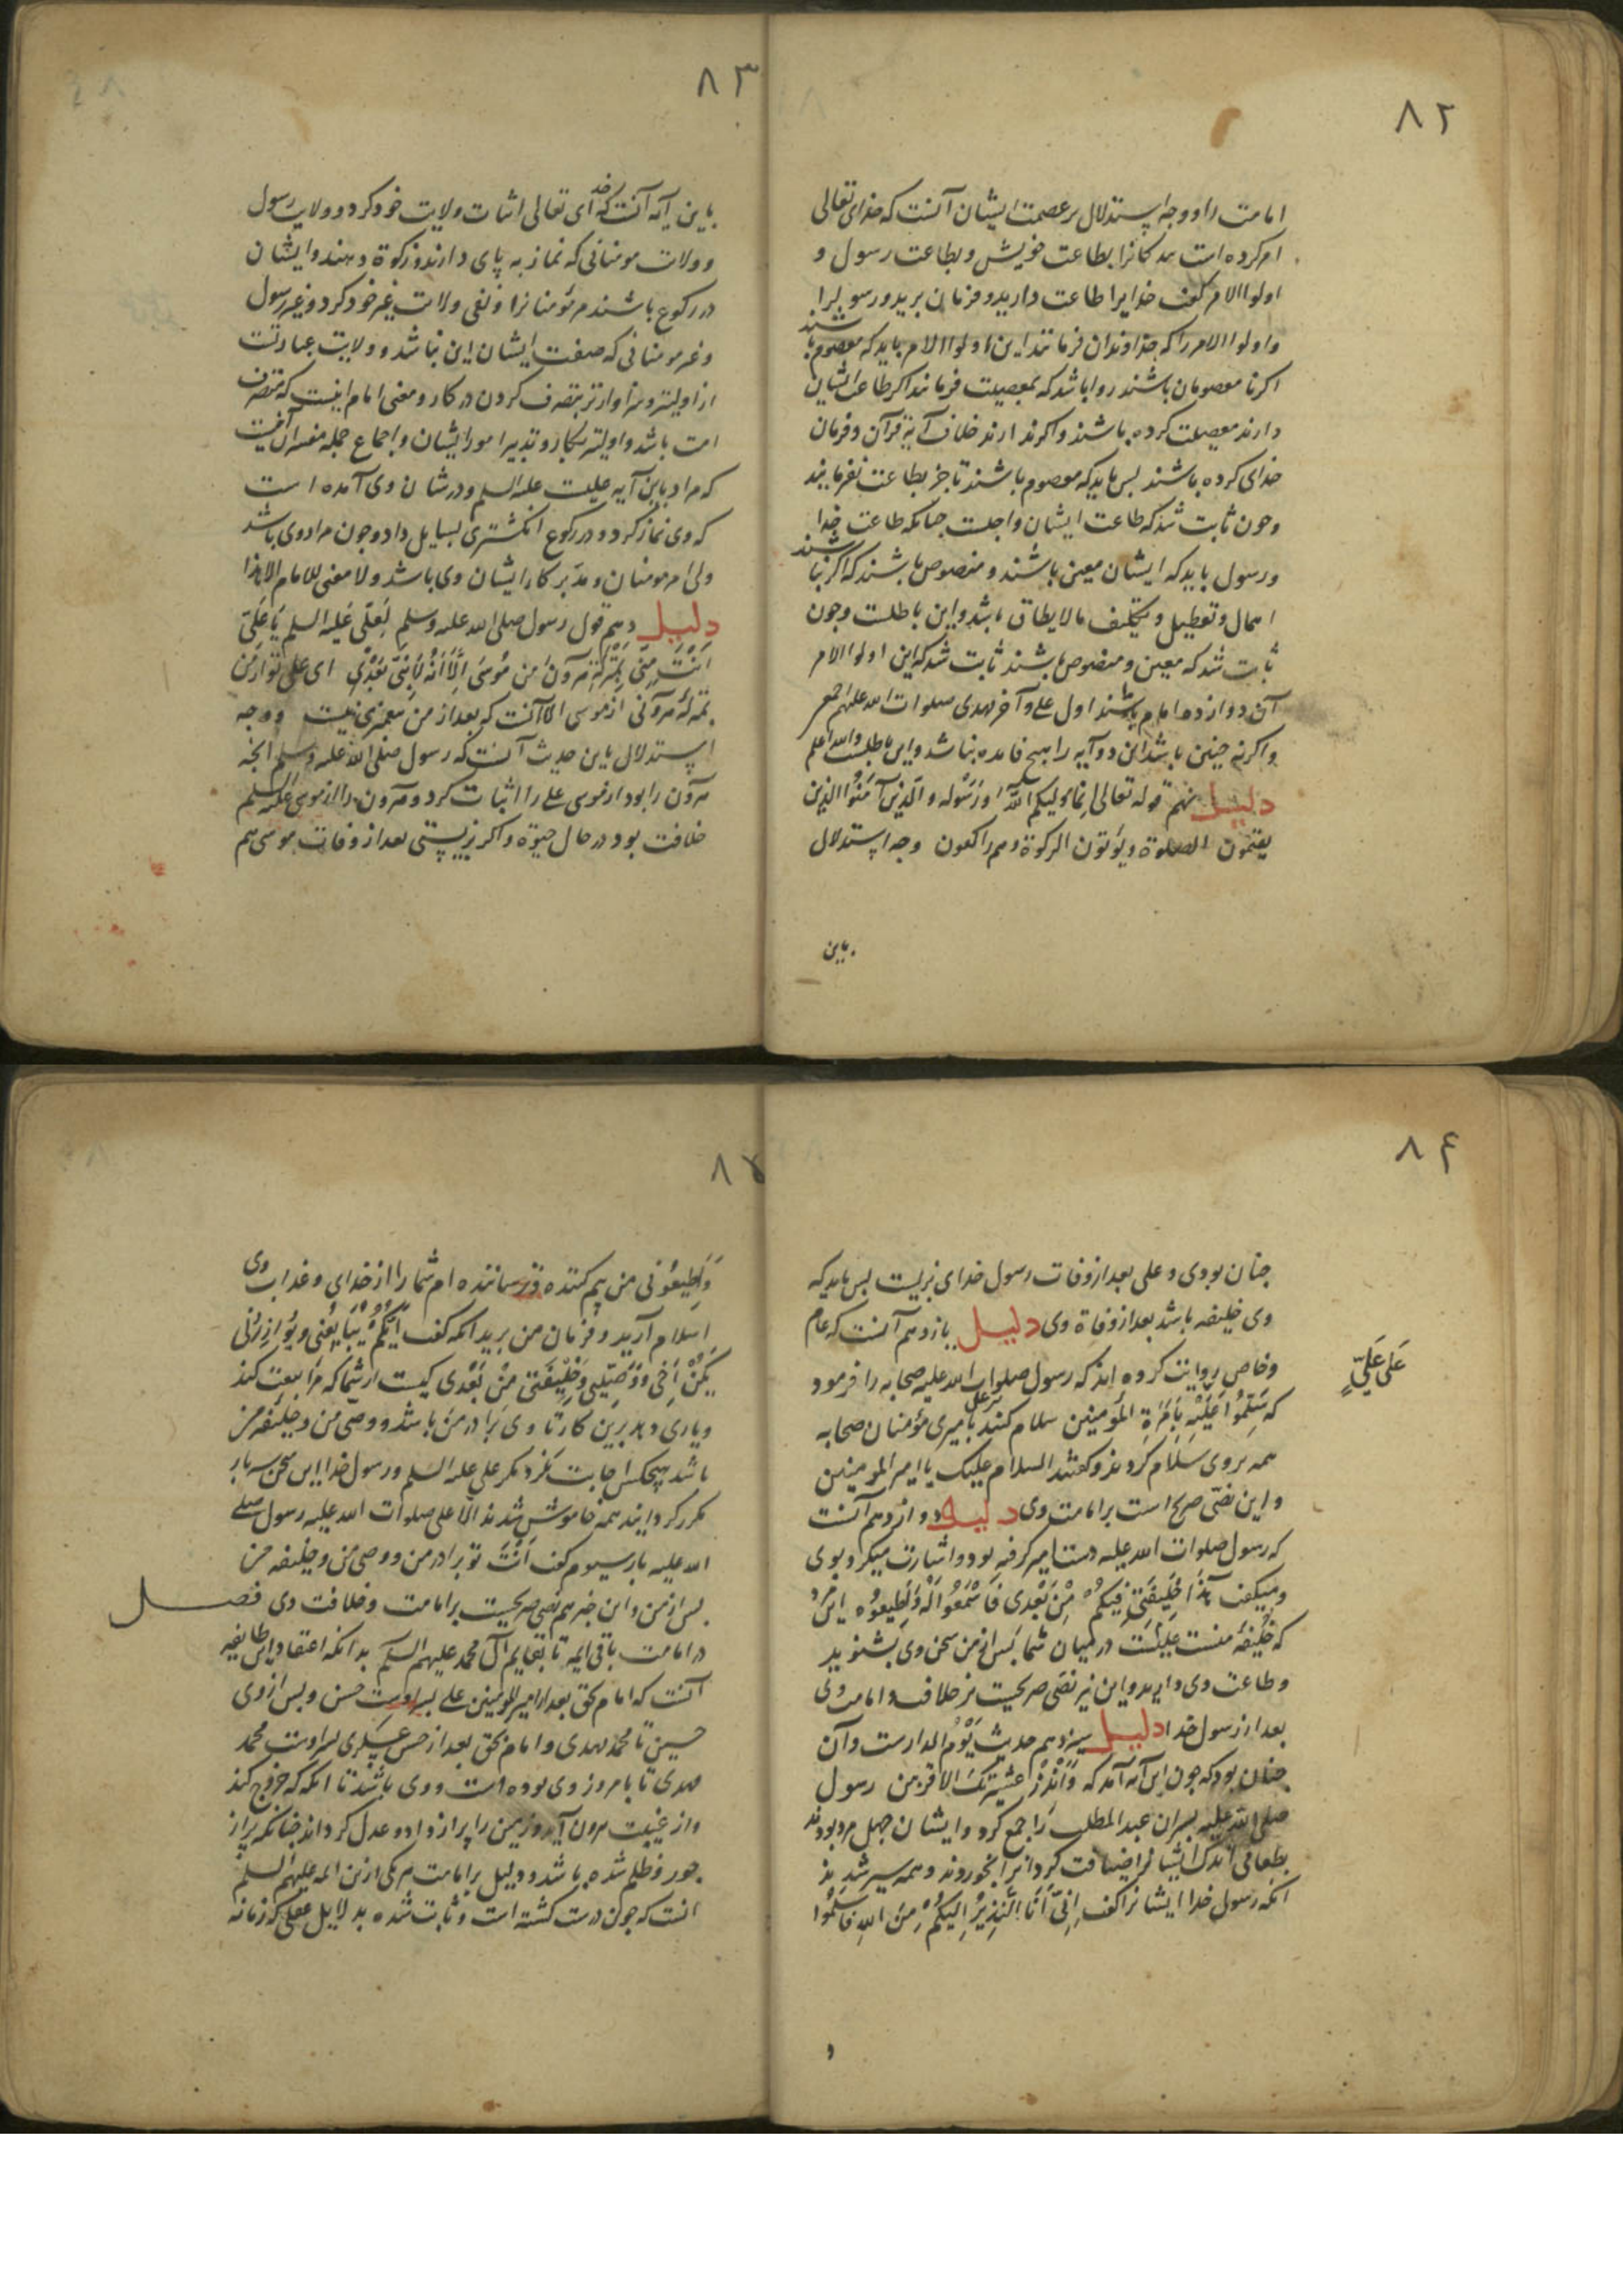 ۸۲
امامت را و وجه استدلال بر عصمت ایشان آنست که خدای تعالی
امر کرده است بندکانرا بطاعت خویش و بطاعت رسول و
اولوا الامر کفت خدایرا طاعت دارید و فرمان برید و رسولرا
و اولوا الامر را که خداوندان فرمانند این اولوا الامر باید که معصوم باشند
اکر نا معصومان باشند روا باشد که بمعصیت فرمانند اکر طاعت ایشان
دارند معصیت کرده باشند و اکر ندارند خلاف آیة قرآن و فرمان
خدای کرده باشند بس باید که معصوم باشند تا جز بطاعت نفرمایند
و جون ثابت شد که طاعت ایشان واجلت جنانکه طاعت خدا
و رسول باید که ایشان معین باشند و منصوص باشند که اکر نباشند
اهمال و تعطیل و تکلیف مالایطاق باشد و این باطلست و جون
ثابت شد که معین و منصوص باشند ثابت شد که این اولوا الامر
آن دوازده امام باشند اول علی و آخر مهدی صلوات الله علیهم اجمعین
و اکر نه جنین باشد این دو آیه را هیچ فایده نباشد و این باطلست والله اعلم
دلیل نهم قوله تعالی انما ولیکم الله و رسوله والذین آمنوا الذین
یقیمون الصلوة ویؤتون الزکوة وهم راکعون وجه استدلال
باین
۸۳
باین آیه آنست که خدای تعالی اثبات ولایت خود کرد و ولایت رسول
و ولایت مومنانی که نماز به پای دارند و زکوة دهند و ایشان
در رکوع باشند مر مؤمنانرا و نفی ولایت غیر خود کرد و غیر رسول
و غیر مومنانی که صفت ایشان این نباشد و ولایت عبارتست
از اولیتر و سزاوارتر بتصرف کردن در کار و معنی امام اینست که متصرف
امت باشد و اولیتر بکار و تدبیر امور ایشان و اجماع جمله مفسران آنست
که مراد باین آیه علیست علیه السلم و در شان وی آمده است
که وی نماز کرد و در رکوع انکشتری بسایل داد و جون مراد وی باشد
ولی امر مومنان و مدبر کار ایشان وی باشد ولا معنی للامام الا هذا
دلیل دهم قول رسول صلی الله علیه وسلم لعلی علیه السلم یا علی
انت منی بمنزلة هرون من موسی الا انه لا نبی بعدی ای علی تو از من
بمنزلۀ هرونی از موسی الا آنست که بعد از من بیغمبری نیست و وجه
استدلال باین حدیث آنست که رسول صلی الله علیه وسلم آنجه
هرون را بود از موسی علی را اثبات کرد و هرون را از موسی علیه السلم
خلافت بود در حال حیوة و اکر بزیستی بعد از وفات موسی هم
۸۴
جنان بودی و علی بعد از وفات رسول خدای بزیست بس باید که
وی خلیفه باشد بعد از وفاة وی دلیل یازدهم آنست که عام
و خاص روایت کرده اند که رسول صلوات الله علیه صحابه را فرمود
علی علیّ
که سلموا علیه بامرة المؤمنین سلام کنید بر علی بامیری مؤمنان صحابه
همه بروی سلام کردند و کفتند السلام علیک یا امیر المومنین
و این نصّی صریح است بر امامت وی دلیل دوازدهم آنست
که رسول صلوات الله علیه دست امیر کرفته بود و اشارت میکرد بوی
و میکفت هذا خلیفتی فیکم من بعدی فاسمعوا له واطیعوه این مرد
که خلیفۀ منست علیست در میان شما بس از من سخن وی بشنوید
و طاعت وی دارید و این نیز نصّی صریحست بر خلافت و امامت وی
بعد از رسول خدا دلیل سیزدهم حدیث یوم الدارست و آن
جنان بود که جون این آیه آمد که وانذر عشیرتک الاقربین رسول
صلی الله علیه بسران عبد المطلب را جمع کرد و ایشان جهل مرد بودند
بطعامی اندک ایشانرا ضیافت کرد آنرا بخوردند و همه سیر شدند
آنکه رسول خدا ایشانرا کفت انی انا النذیر الیکم من الله فاسلموا
و
۸۵
واطیعونی من بیم کننده و ترساننده ام شما را از خدای و عذاب وی
اسلام آرید و فرمان من برید آنکه کفت ایکم یبایعنی ویوازرنی
یکن اخی ووصیی وخلیفتی من بعدی کیست از شما که مرا بیعت کند
و یاری دهد برین کار تا وی برادر من باشد و وصی من و خلیفه من
باشد هیچکس اجابت نکرد مکر علی علیه السلم و رسول خدا این سخن سه بار
مکرر کردانید همه خاموش شدند الا علی صلوات الله علیه رسول صلی
الله علیه بار سیوم کفت انت تو برادر من و وصی من و خلیفه من
بس از من و این خبر هم نصی صریحست بر امامت و خلافت وی فصل
در امامت باقی ایمه تا بقایم آل محمد علیهم السلم بدانکه اعتقاد این طایفه
آنست که امام بحق بعد از امیر المومنین علی بسر اوست حسن و بس از وی
حسین تا محمد مهدی و امام بحق بعد از حسن عسکری بسر اوست محمد
مهدی تا بامروز وی بوده است و وی باشد تا آنکه که خروج کند
و از غیبت بیرون آید و زمین را بر از داد و عدل کرداند جنانکه بر از
جور و ظلم شده باشد و دلیل بر امامت هر یکی ازین ائمه علیهم السلم
آنست که جون درست کشته است و ثابت شده بدلایل عقلی که زمانه